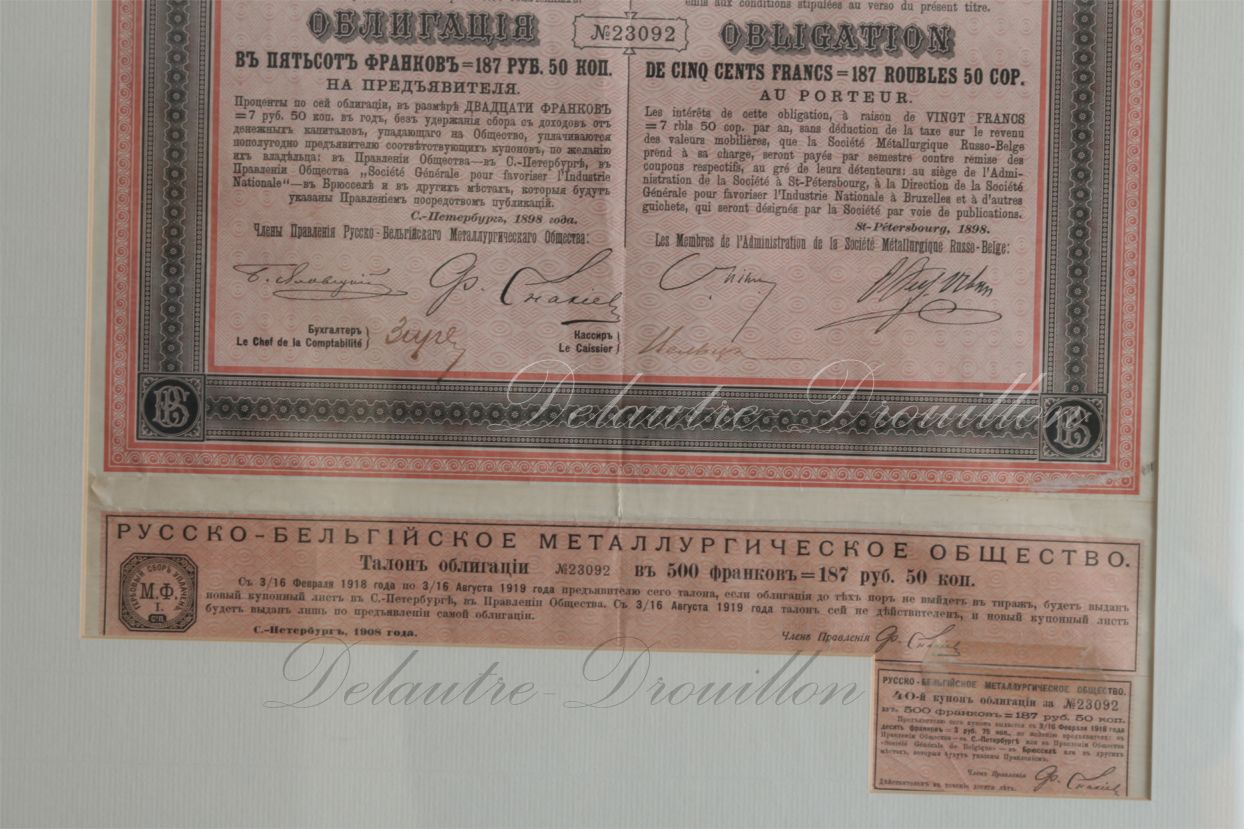 emis aux conditions stipulées au verso du présent titre.
ОБЛИГАЦІЯ
№23092
OBLIGATION
ВЪ ПЯТЬСОТЪ ФРАНКОВЪ=187 РУБ. 50 КОП.
НА ПРЕДЪЯВИТЕЛЯ.
Проценты по сей облигаціи, въ размѣрѣ ДВАДЦАТИ ФРАНКОВЪ
=7 руб. 50 коп. въ годъ, безъ удержанія сбора съ доходовъ отъ
денежныхъ капиталовъ, упадающаго на Общество, уплачиваются
пополугодно предъявителю соотвѣтствующихъ купоновъ, по желанію
ихъ владѣльца: въ Правленіи Общества—въ С.-Петербургѣ, въ
Правленіи Общества „Société Générale pour favoriser l'Industrie
Nationale"—въ Брюсселѣ и въ другихъ мѣстахъ, которыя будутъ
указаны Правленіемъ посредствомъ публикацій.
С.-Петербургъ, 1898 года.
Члены Правленія Русско-Бельгійскаго Металлургическаго Общества:
DE CINQ CENTS FRANCS=187 ROUBLES 50 COP.
AU PORTEUR.
Les intérêts de cette obligation, à raison de VINGT FRANCS
=7 rbls 50 cop. par an, sans déduction de la taxe sur le revenu
des valeurs mobilières, que la Société Métallurgique Russo-Belge
prend à sa charge, seront payés par semestre contre remise des
coupons respectifs, au gré de leurs détenteurs: au siège de l'Admi-
nistration de la Société à St-Pétersbourg, à la Direction de la Société
Générale pour favoriser l'Industrie Nationale à Bruxelles et à d'autres
guichets, qui seront désignés par la Société par voie de publications.
St-Pétersbourg, 1898.
Les Membres de l'Administration de la Société Métallurgique Russo-Belge:
Бухгалтеръ
Le Chef de la Comptabilité
Кассиръ
Le Caissier
Delautre-Drouillon
РУССКО-БЕЛЬГІЙСКОЕ МЕТАЛЛУРГИЧЕСКОЕ ОБЩЕСТВО.
Талонъ облигаціи №23092 въ 500 франковъ=187 руб. 50 коп.
ГЕРБОВЫЙ СБОРЪ УПЛАЧЕНЪ
М.Ф.
I.
Съ 3/16 Февраля 1918 года по 3/16 Августа 1919 года предъявителю сего талона, если облигація до тѣхъ поръ не выйдетъ въ тиражъ, будетъ выданъ
новый купонный листъ въ С.-Петербургѣ, въ Правленіи Общества. Съ 3/16 Августа 1919 года талонъ сей не дѣйствителенъ, и новый купонный листъ
будетъ выданъ лишь по предъявленіи самой облигаціи.
С.-Петербургъ, 1908 года.
Членъ Правленія
Delautre-Drouillon
РУССКО-БЕЛЬГІЙСКОЕ МЕТАЛЛУРГИЧЕСКОЕ ОБЩЕСТВО.
40-й купонъ облигаціи за №23092
въ 500 франковъ=187 руб. 50 коп.
Предъявителю сего купона выдается съ 3/16 Февраля 1918 года
десять франковъ = 3 руб. 75 коп., по желанію предъявителя: въ
Правленіи Общества—въ С.-Петербургѣ или въ Правленіи Общества
«Société Générale de Belgique»—въ Брюсселѣ или въ другихъ
мѣстахъ, которыя будутъ указаны Правленіемъ.
Членъ Правленія
Дѣйствителенъ въ теченіе десяти лѣтъ.